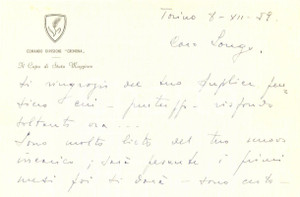 Torino X-XII-59.
COMANDO DIVISIONE "CREMONA"
Il Capo di Stato Maggiore
Caro Longo,
ti ringrazio del tuo duplice pen-
siero cui - purtroppo - rispondo
soltanto ora ...
Sono molto lieto del tuo nuovo
incarico; sarà pesante i primi
mesi poi ti darà - sono certo -